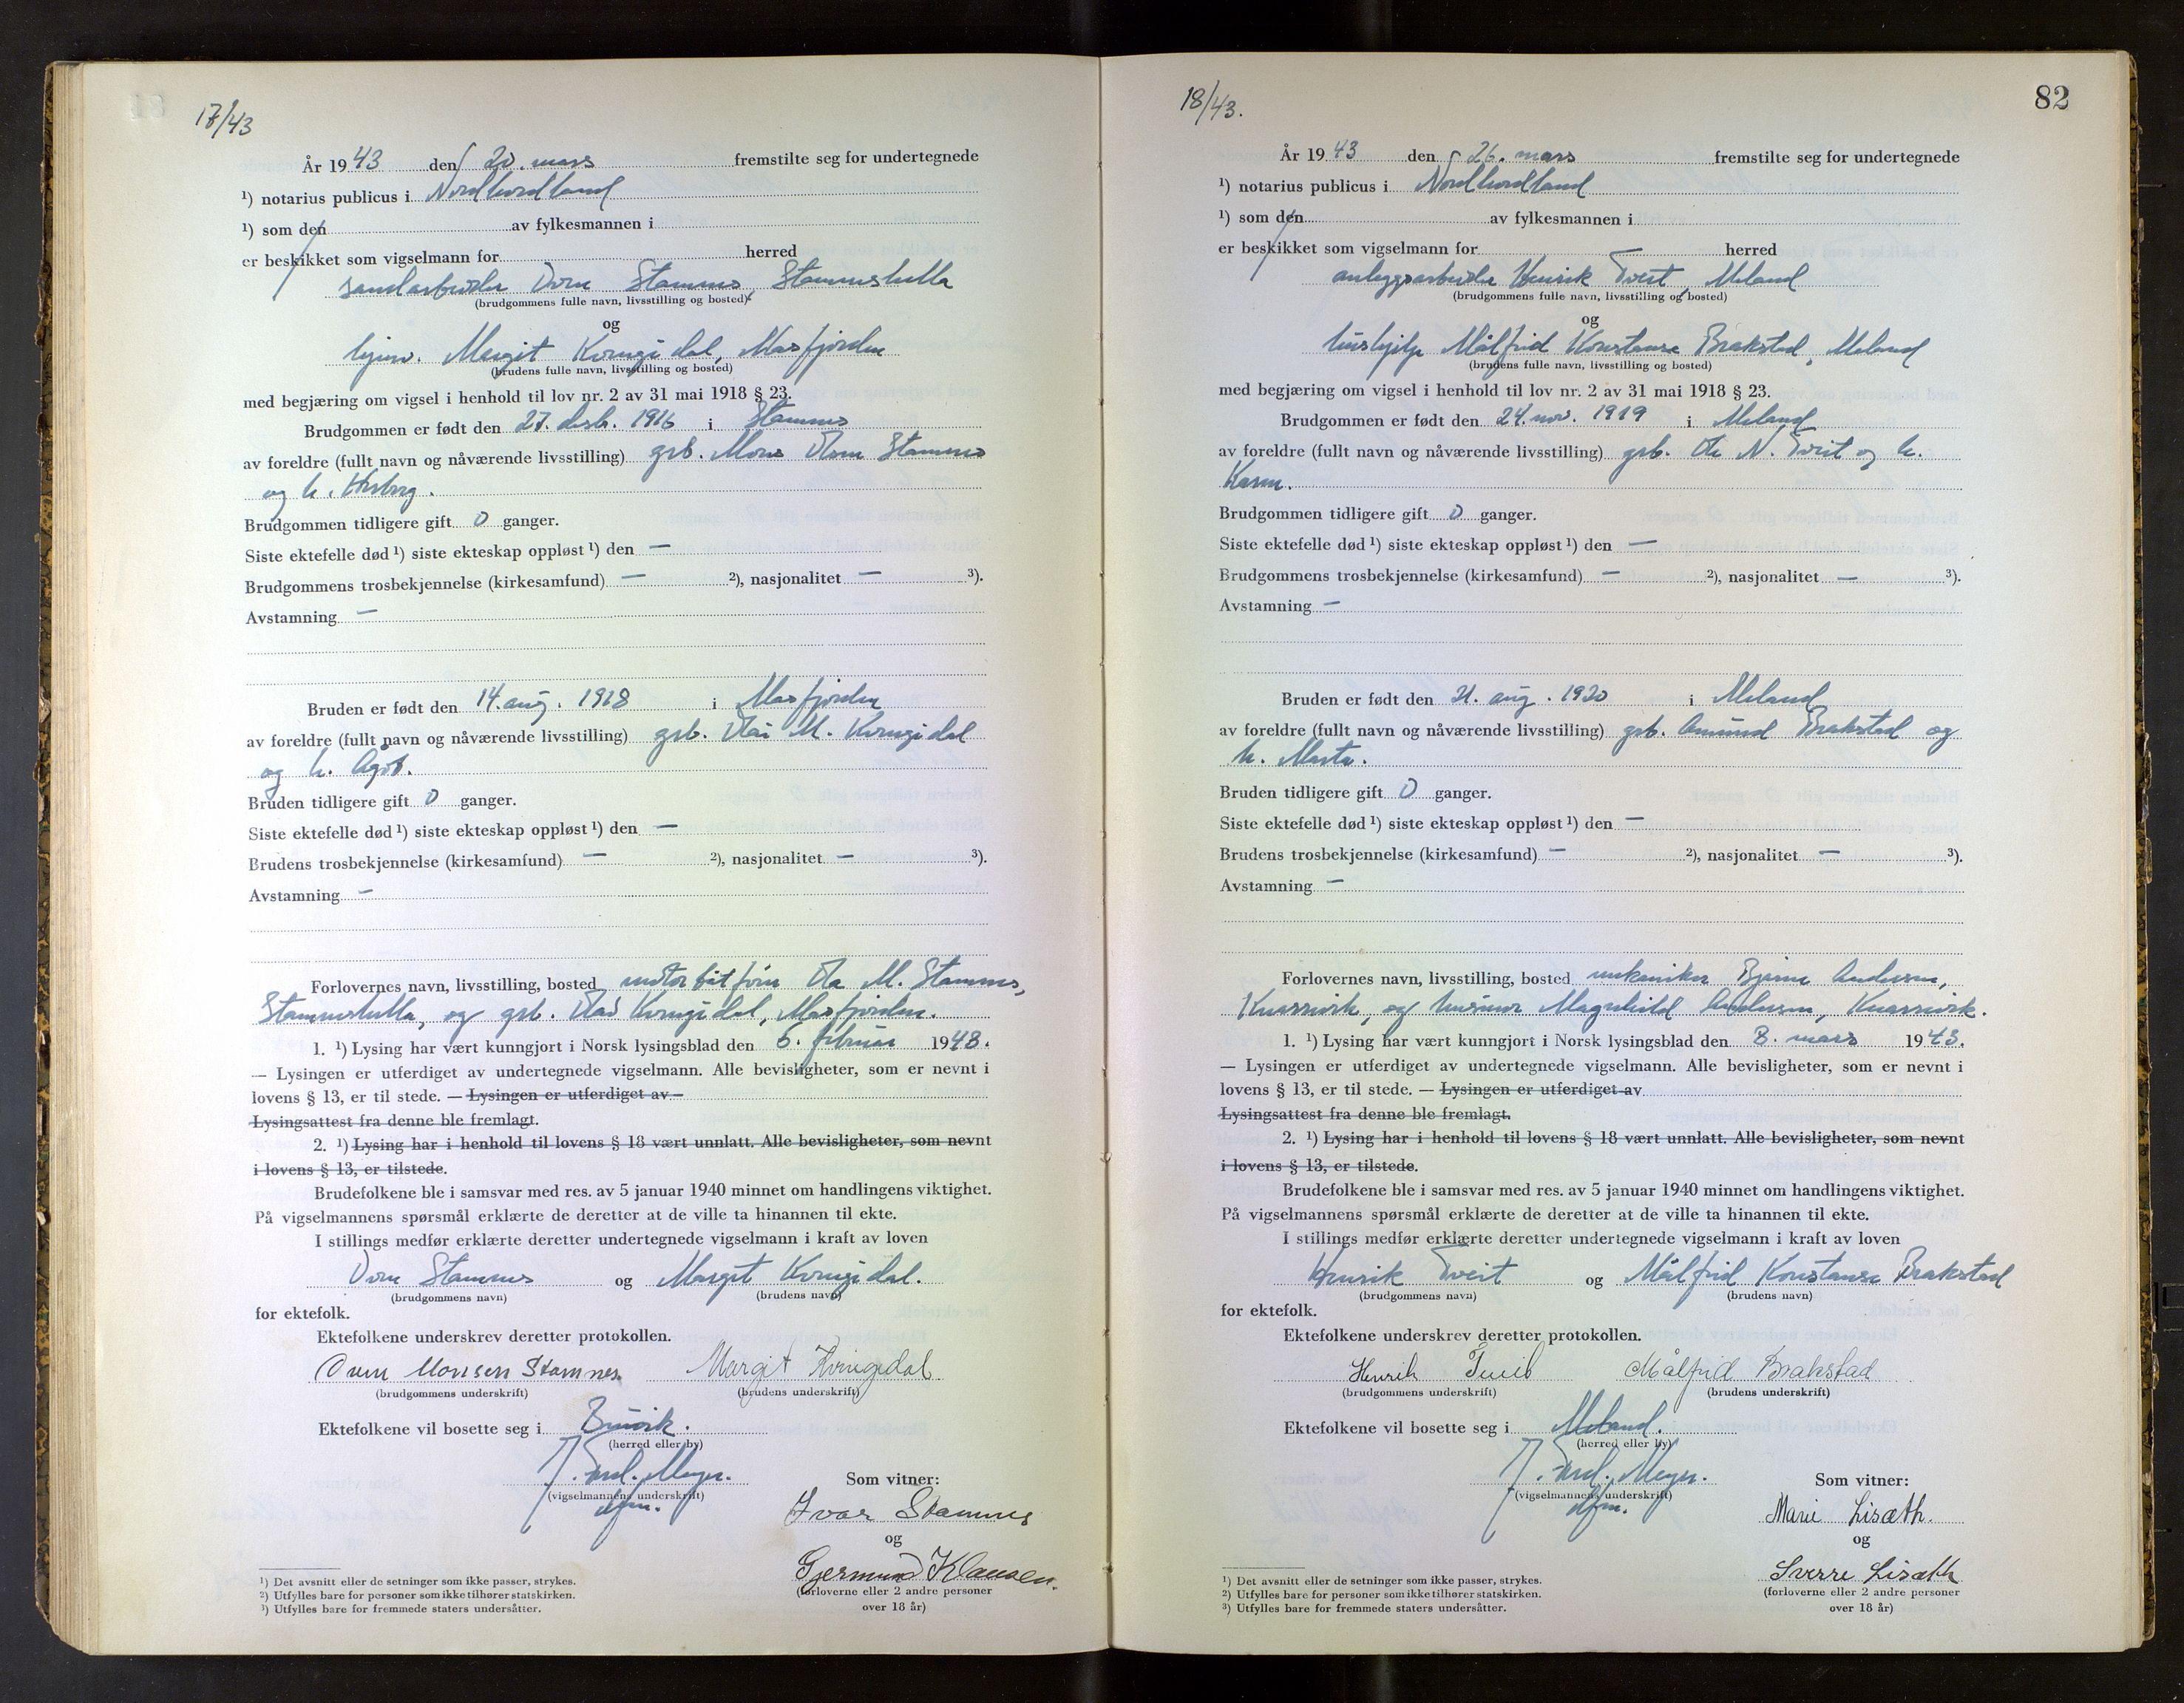 17/43
År 1943 den 20. mars fremstilte seg for undertegnede
¹) notarius publicus i Nordhordland
¹) som den av fylkesmannen i
er beskikket som vigselmann for herred
sandarbeider Stamnes, Stamneshella
(brudgommens fulle navn, livsstilling og bosted)
og
hjem. Margit Kvingedal, Masfjorden
(brudens fulle navn, livsstilling og bosted)
med begjæring om vigsel i henhold til lov nr. 2 av 31 mai 1918 § 23.
Brudgommen er født den 27. desb. 1916 i Stamnes
av foreldre (fullt navn og nåværende livsstilling) grb. Mons Stamnes
og h.
Brudgommen tidligere gift 0 ganger.
Siste ektefelle død ¹) siste ekteskap oppløst ¹) den —
Brudgommens trosbekjennelse (kirkesamfund) — ²), nasjonalitet — ³).
Avstamning —
Bruden er født den 14. aug. 1918 i Masfjorden
av foreldre (fullt navn og nåværende livsstilling) grb. M. Kvingedal
og h. Ågot.
Bruden tidligere gift 0 ganger.
Siste ektefelle død ¹) siste ekteskap oppløst ¹) den —
Brudens trosbekjennelse (kirkesamfund) — ²), nasjonalitet — ³).
Avstamning —
Forlovernes navn, livsstilling, bosted motorbåtfører Ola M. Stamnes,
Stamneshella, og grb. Kvingedal, Masfjorden.
1. ¹) Lysing har vært kunngjort i Norsk lysingsblad den 6. februar 1943.
— Lysingen er utferdiget av undertegnede vigselmann. Alle bevisligheter, som er nevnt i
lovens § 13, er til stede. — Lysingen er utferdiget av
Lysingsattest fra denne ble fremlagt.
2. ¹) Lysing har i henhold til lovens § 18 vært unnlatt. Alle bevisligheter, som nevnt
i lovens § 13, er tilstede.
Brudefolkene ble i samsvar med res. av 5 januar 1940 minnet om handlingens viktighet.
På vigselmannens spørsmål erklærte de deretter at de ville ta hinannen til ekte.
I stillings medfør erklærte deretter undertegnede vigselmann i kraft av loven
Stamnes og Margit Kvingedal.
(brudgommens navn) (brudens navn)
for ektefolk.
Ektefolkene underskrev deretter protokollen.
Monsen Stamnes. Margit Kvingedal
(brudgommens underskrift) (brudens underskrift)
Ektefolkene vil bosette seg i Bruvik.
(herred eller by)
Meyer.
(vigselmannens underskrift)
Som vitner:
Ivar Stamnes
og
Gjermund Klausen.
(forloverne eller 2 andre personer
over 18 år)
¹) Det avsnitt eller de setninger som ikke passer, strykes.
²) Utfylles bare for personer som ikke tilhører statskirken.
³) Utfylles bare for fremmede staters undersåtter.
18/43.
82
År 1943 den 26. mars fremstilte seg for undertegnede
¹) notarius publicus i Nordhordland
¹) som den av fylkesmannen i
er beskikket som vigselmann for herred
anleggsarbeider Henrik Tveit, Meland
(brudgommens fulle navn, livsstilling og bosted)
og
hushjelp Målfrid Konstanse Brakstad, Meland
(brudens fulle navn, livsstilling og bosted)
med begjæring om vigsel i henhold til lov nr. 2 av 31 mai 1918 § 23.
Brudgommen er født den 24. nov. 1919 i Meland
av foreldre (fullt navn og nåværende livsstilling) grb. Ole N. Tveit og h.
Karen.
Brudgommen tidligere gift 0 ganger.
Siste ektefelle død ¹) siste ekteskap oppløst ¹) den —
Brudgommens trosbekjennelse (kirkesamfund) — ²), nasjonalitet — ³).
Avstamning —
Bruden er født den 21. aug. 1920 i Meland
av foreldre (fullt navn og nåværende livsstilling) grb. Amund Brakstad og
h. Marta.
Bruden tidligere gift 0 ganger.
Siste ektefelle død ¹) siste ekteskap oppløst ¹) den —
Brudens trosbekjennelse (kirkesamfund) — ²), nasjonalitet — ³).
Avstamning —
Forlovernes navn, livsstilling, bosted mekaniker Bjarne Andersen,
Knarrvik, og husmor Magnhild Andersen, Knarrvik.
1. ¹) Lysing har vært kunngjort i Norsk lysingsblad den 8. mars 1943.
— Lysingen er utferdiget av undertegnede vigselmann. Alle bevisligheter, som er nevnt i
lovens § 13, er til stede. — Lysingen er utferdiget av
Lysingsattest fra denne ble fremlagt.
2. ¹) Lysing har i henhold til lovens § 18 vært unnlatt. Alle bevisligheter, som nevnt
i lovens § 13, er tilstede.
Brudefolkene ble i samsvar med res. av 5 januar 1940 minnet om handlingens viktighet.
På vigselmannens spørsmål erklærte de deretter at de ville ta hinannen til ekte.
I stillings medfør erklærte deretter undertegnede vigselmann i kraft av loven
Henrik Tveit og Målfrid Konstanse Brakstad
(brudgommens navn) (brudens navn)
for ektefolk.
Ektefolkene underskrev deretter protokollen.
Henrik Tveit Målfrid Brakstad
(brudgommens underskrift) (brudens underskrift)
Ektefolkene vil bosette seg i Meland.
(herred eller by)
Meyer.
(vigselmannens underskrift)
Som vitner:
Marie Lisæth.
og
Sverre Lisæth
(forloverne eller 2 andre personer
over 18 år)
¹) Det avsnitt eller de setninger som ikke passer, strykes.
²) Utfylles bare for personer som ikke tilhører statskirken.
³) Utfylles bare for fremmede staters undersåtter.